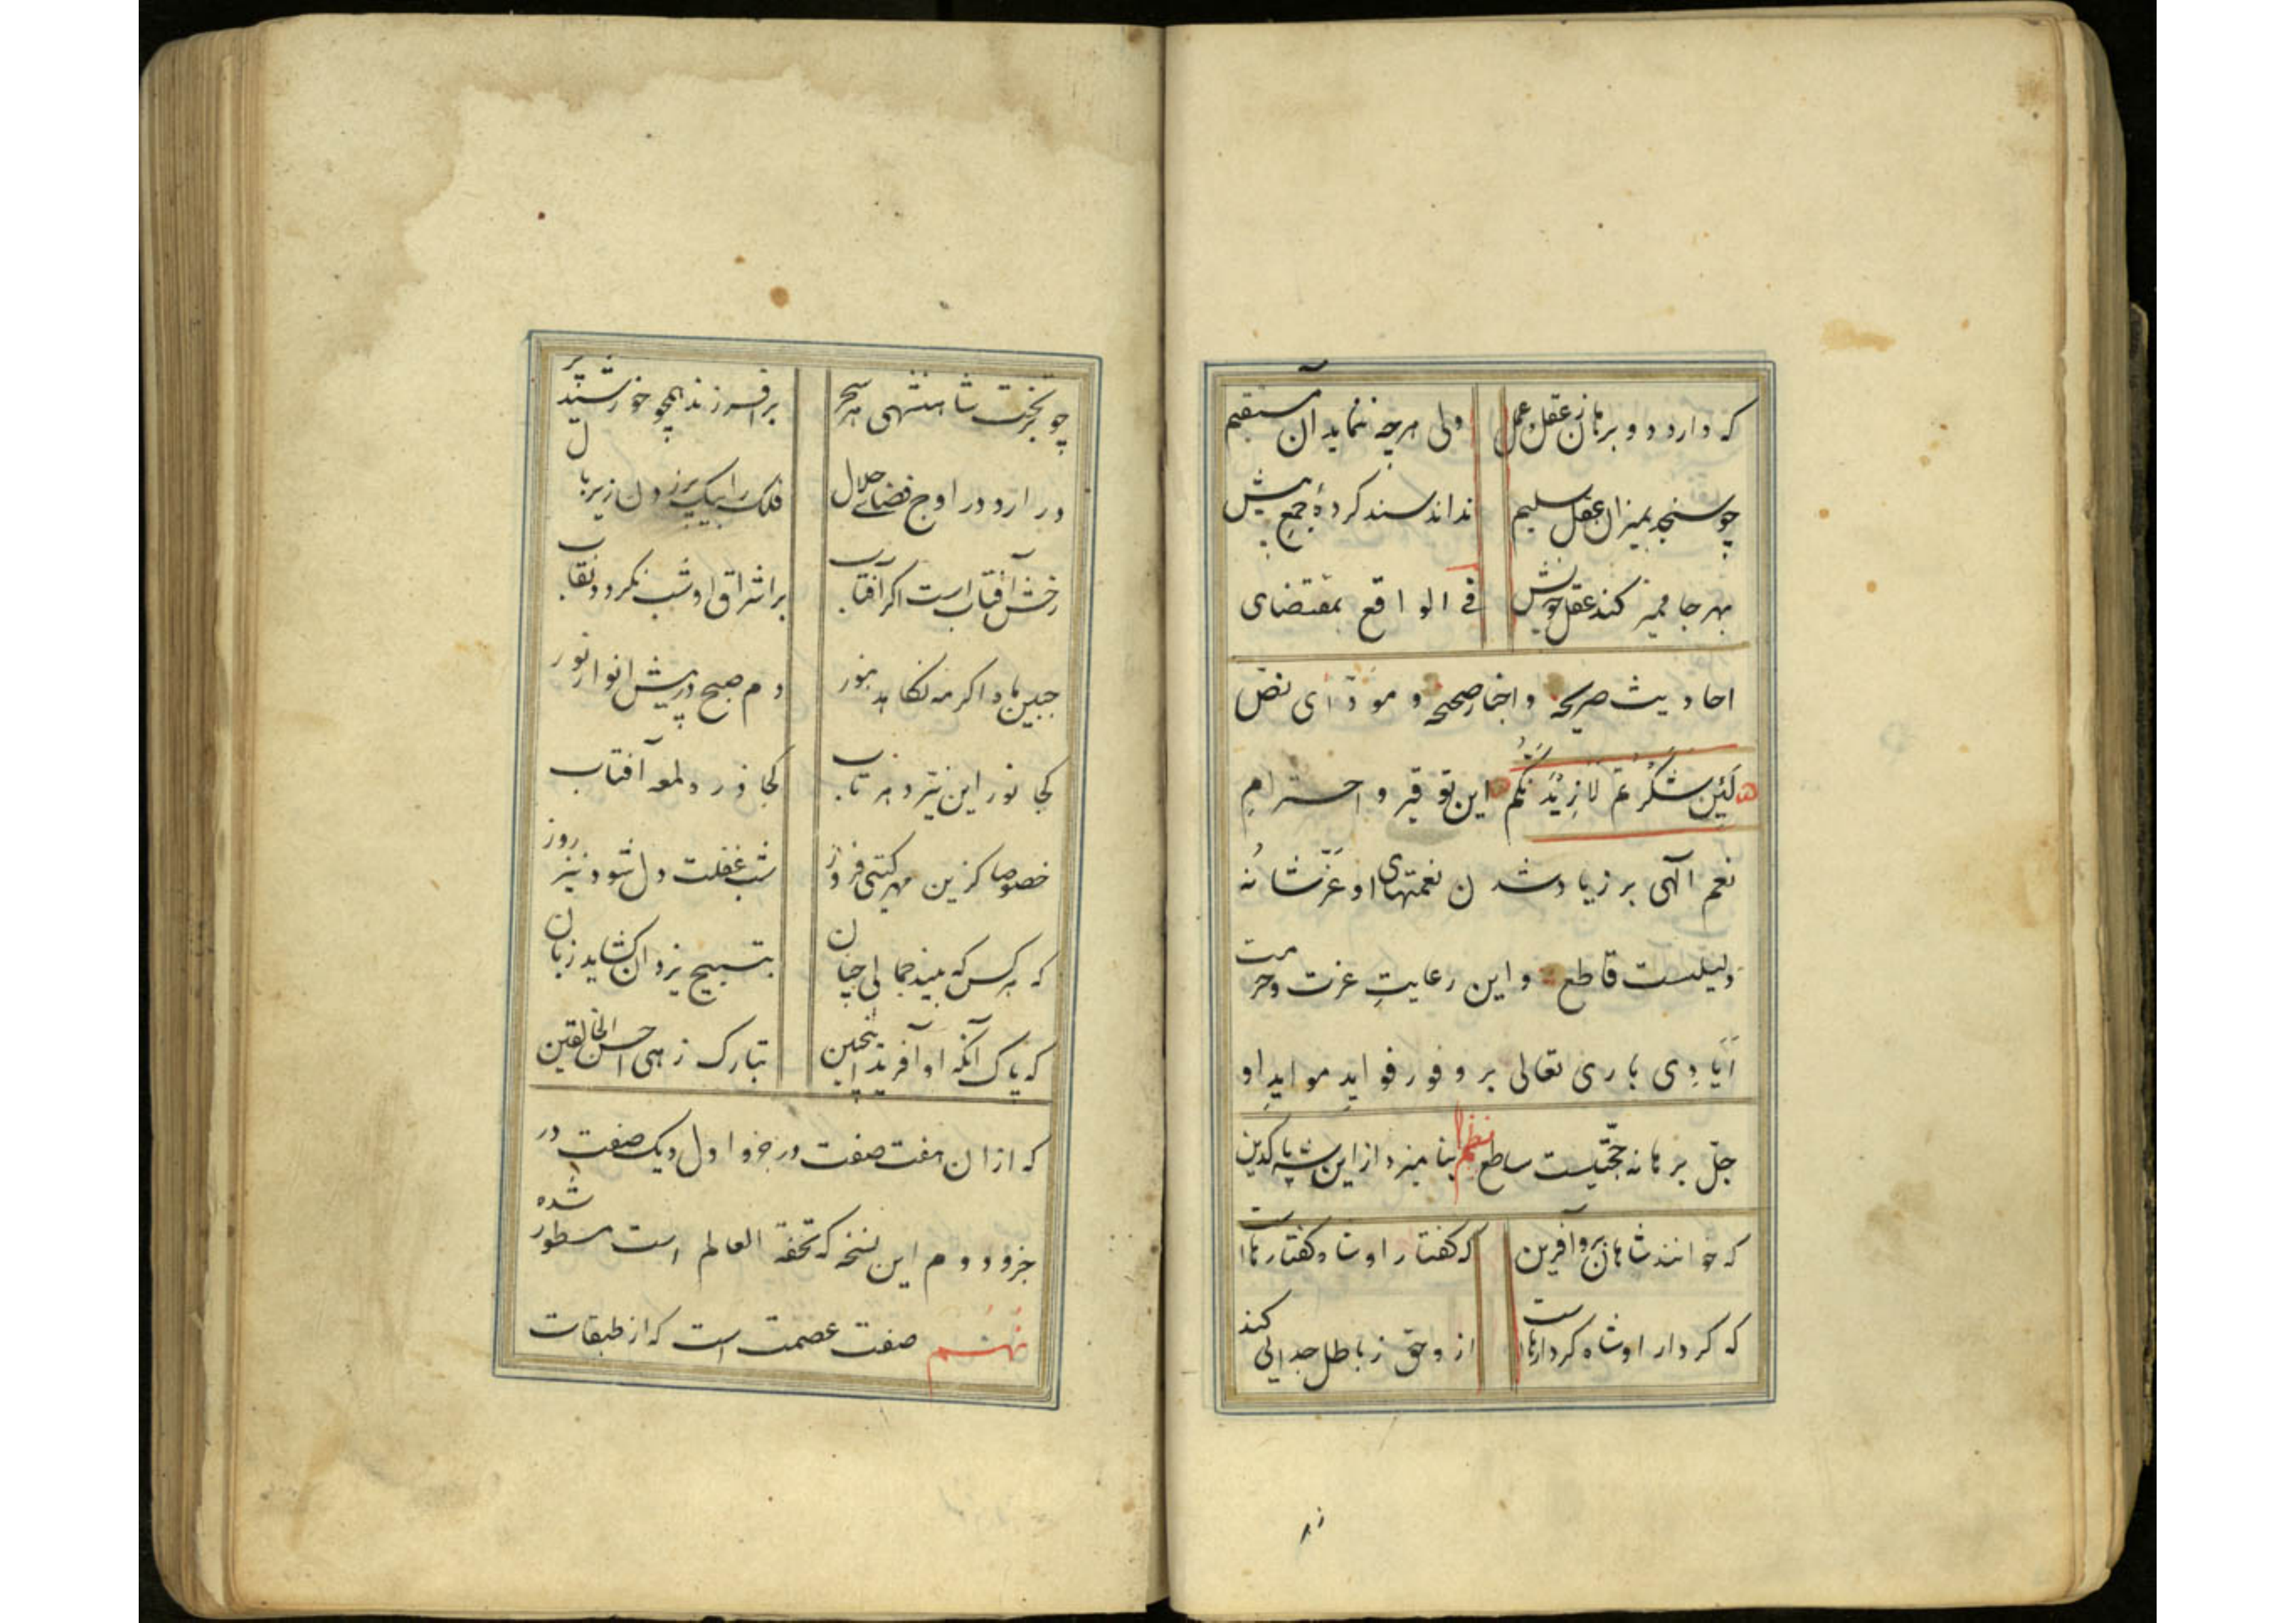 که دارد دو برهان ز عقل و عمل ولی هرچه ننماید آن مستقیم
چو سنجد بمیزان عقل سلیم نداند سند کردهٔ جمع پیش
بهرجا ممیز کند عقل خویش فی الواقع بمقتضای
احادیث صریحه و اخبار صحیحه و مودّای نصّ
لَئِن شَكَرْتُمْ لَأَزِيدَنَّكُمْ این توقیر و احترامِ
نعم آلهی بر زیاد شدن نعمتهای او عَزَّ شانُه
دلیلست قاطع و این رعایتِ عزت و حرمت
اَیادِی باری تعالی بر وفور فوایدِ موایدِ او
جلّ برهانه حجّتیست ساطع نظم بنامیزد از این شه پاکدین
که خوانند شاهان برو آفرین که گفتار او شاه گفتارهاست
که کردار او شاه کردارهاست از و حق ز باطل جدایی کند
چو بر تخت شاهنشهی هر سحر برافروزند همچو خورشید بر
در آرد در اوج فضای جلال فلک را بیک پر زدن زیر بال
رخش آفتاب است اگر آفتاب بر اشراق او شب نگردد نقاب
جبین ماه اگر مه نکاهد بنور دم صبح در پیش انوار نور
کجا نور این نیّر و نزتاب کجا ذره و لمعه آفتاب
خصوصا کزین مهر گیتی فروز شب غفلت دل شود نیز روز
که هر کس که بیند جمالی چنان بتسبیح یزدان گشاید زبان
که پاک آنکه او آفرید اینچنین تبارک زهی احسن الخالقین
که از ان هفت صفت در جزو اول و یک صفت در
جزو دوم این نسخه که تحفة العالم است مسطور شده
نهُم صفت عصمت است که از طبقات